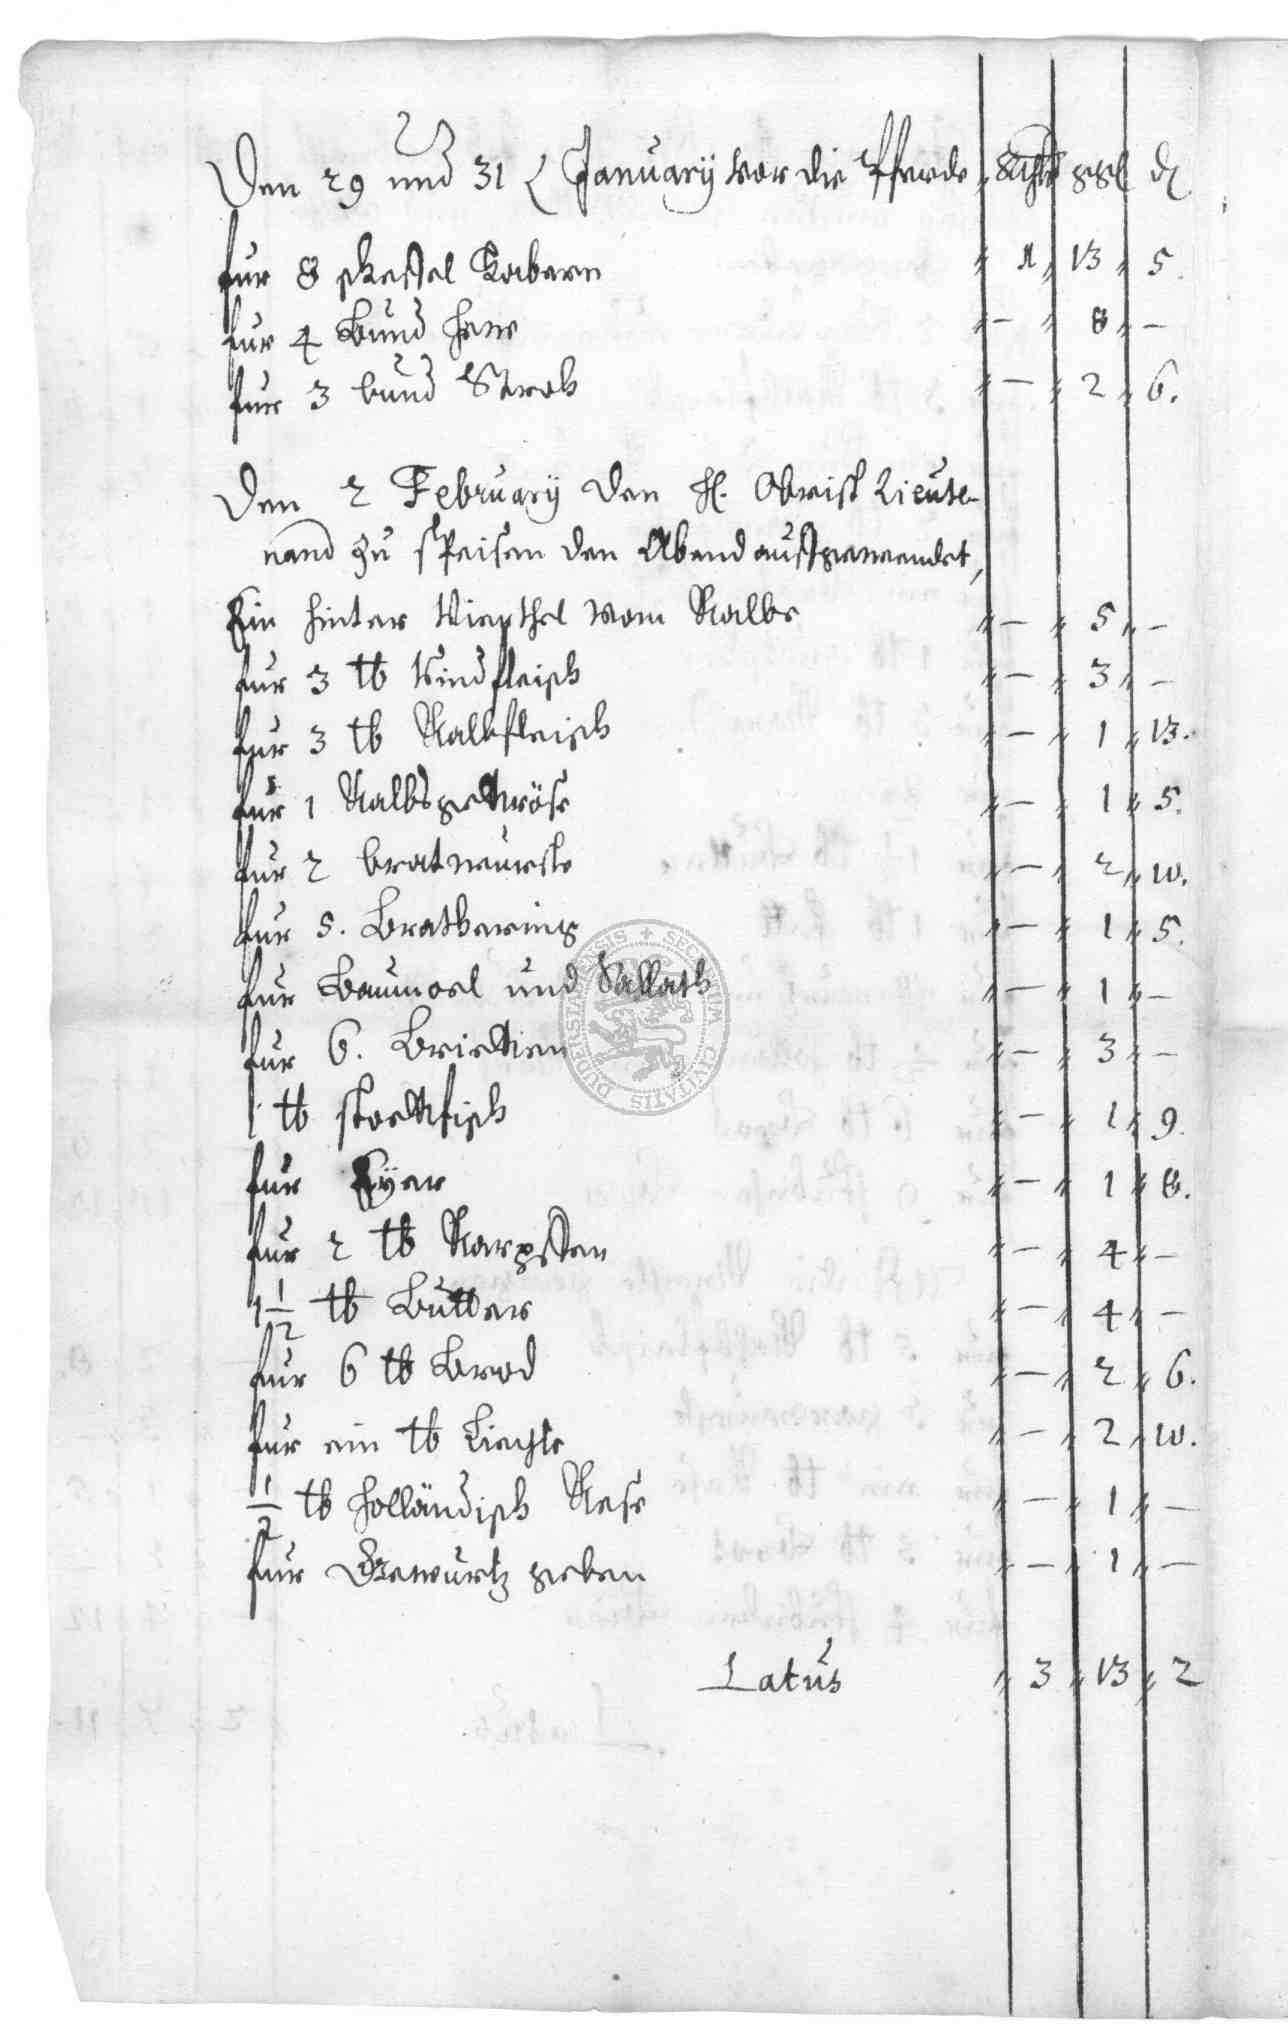 Den 29 und 31 January vor die Pferde Rthlr ggl d
fur 8 scheffel Habern " 1 " 13 " 5.
fur 4 Bund Heu " — " 8 " —
fur 3 bund Stroh " — " 2 " 6.
Den 2 February den H. Obrist Lieute-
nand zu speisen den Abend aussgewendet,
Ein hinter Vierthel vom Kalbe " — " 5 " —
fur 3 tb Rindfleisch " — " 3 " —
fur 3 tb Kalbfleisch " — " 1 " 13.
fur 1 Kalbsgekröse " — " 1 " 5.
fur 2 bratwurste " — " 2 " 10.
fur 5. Brathering " — " 1 " 5.
fur Baumoel und Sallath " — " 1 " —
fur 6. Bricken " — " 3 " —
1 tb stockfisch " — " 1 " 9.
fur Eyer " — " 1 " 8.
fur 2 tb Karpffen " — " 4 " —
1 1/2 tb Butter " — " 4 " —
fur 6 tb Brod " — " 2 " 6.
fur ein tb Liechte " — " 2 " 10.
1/2 tb holländisch Kese " — " 1 " —
fur Gewurtz geben " — " 1 " —
Latus " 3 " 13 " 2
SECRETUM CIVITATIS DUDERSTADENSIS